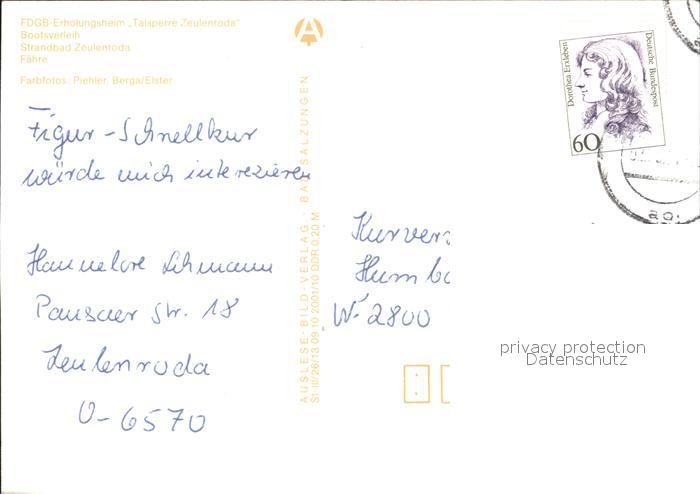 FDGB-Erholungsheim „Talsperre Zeulenroda"
Bootsverleih
Strandbad Zeulenroda
Fähre
Farbfotos: Piehler, Berga/Elster
Figur-Schnellkur
würde mich interezieren
Hannelore Lehmann
Pausaer Str. 18
Zeulenroda
O-6570
AUSLESE-BILD-VERLAG · BAD SALZUNGEN
St-III/26/13 09 10 2001/10 DDR 0,20 M
Dorothea Erxleben
Deutsche Bundespost
60
Kurvers
Humbo
W-2800
privacy protection
Datenschutz